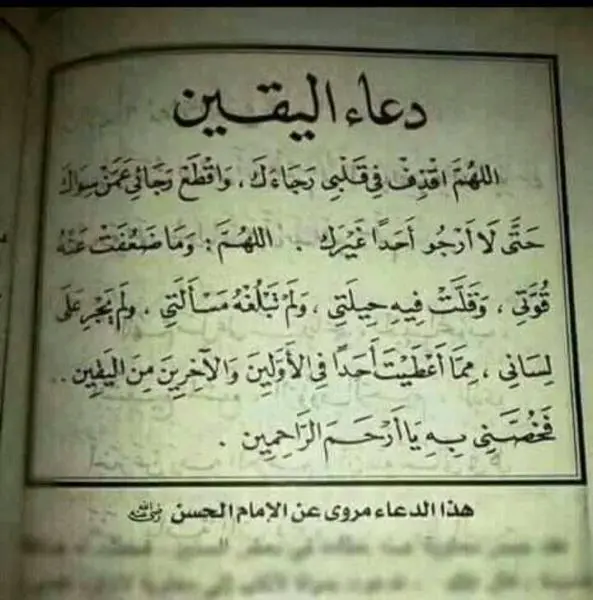 دعاء اليقين
اللهُمَّ اقْذِفْ فِي قَلْبِي رَجَاءَكَ، وَاقْطَعْ رَجَائِي عَمَّنْ سِوَاكَ
حَتَّى لَا أَرْجُو أَحَدًا غَيْرَكَ . اللهُمَّ : وَمَا ضَعُفَتْ عَنْهُ
قُوَّتِي ، وَقَلَّتْ فِيهِ حِيلَتِي ، وَلَمْ تَبْلُغْهُ مَسْأَلَتِي ، وَلَمْ يَجْرِ عَلَى
لِسَانِي ، مِمَّا أَعْطَيْتَ أَحَدًا فِي الأَوَّلِينَ وَالآخِرِينَ مِنَ اليَقِينِ ..
فَخُصَّنِي بِهِ يَا أَرْحَمَ الرَّاحِمِين .
هذا الدعاء مروى عن الإمام الحسن رضي الله عنه